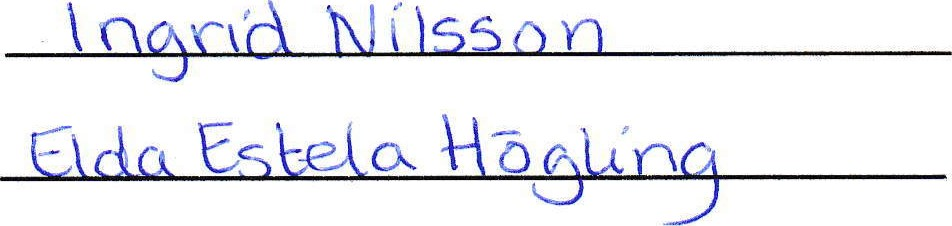 Ingrid Nilsson
Elda Estela Högling